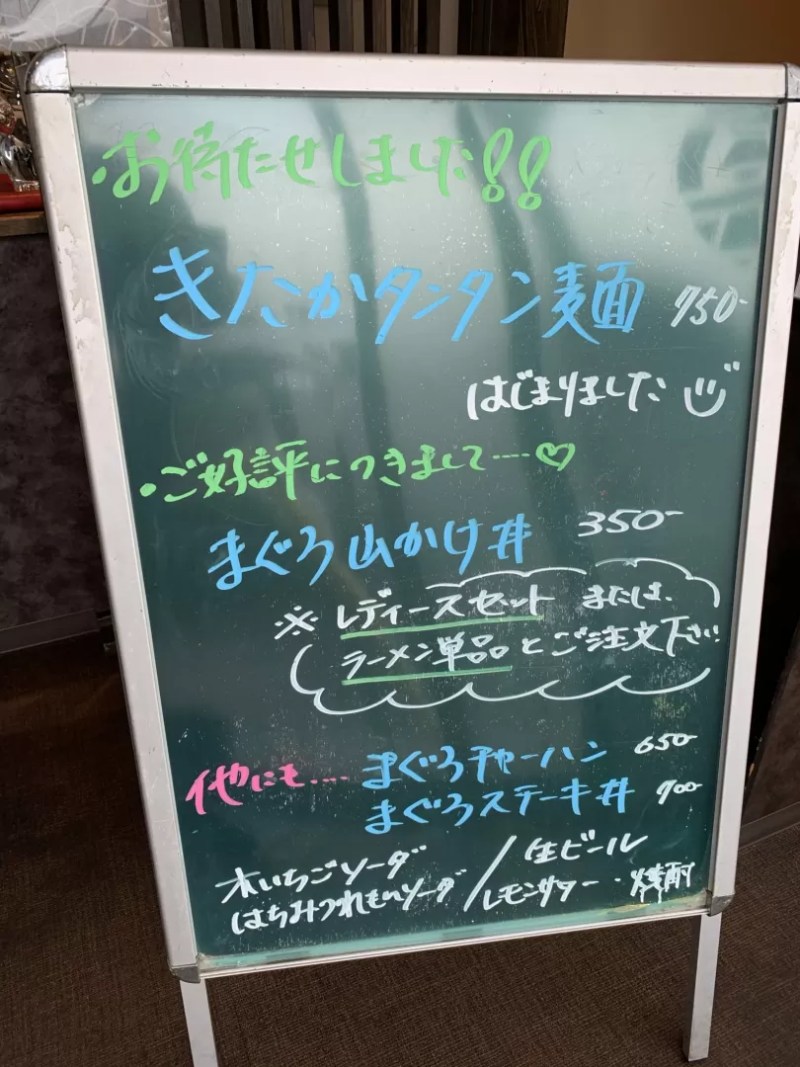 ・お待たせしました!!
きたかタンタン麺 750-
はじまりました
・ご好評につきまして....♡
まぐろ山かけ丼 350-
※ レディースセット または、
ラーメン単品とご注文下さい
他にも.... まぐろチャーハン 650-
まぐろステーキ丼 900-
木いちごソーダ / 生ビール
はちみつれもんソーダ / レモンサワー・焼酎